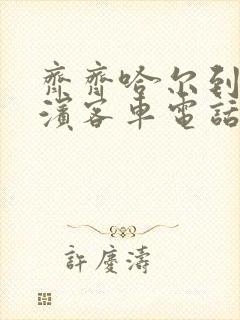 齊齊哈尔到
濱客車電話
許慶濤